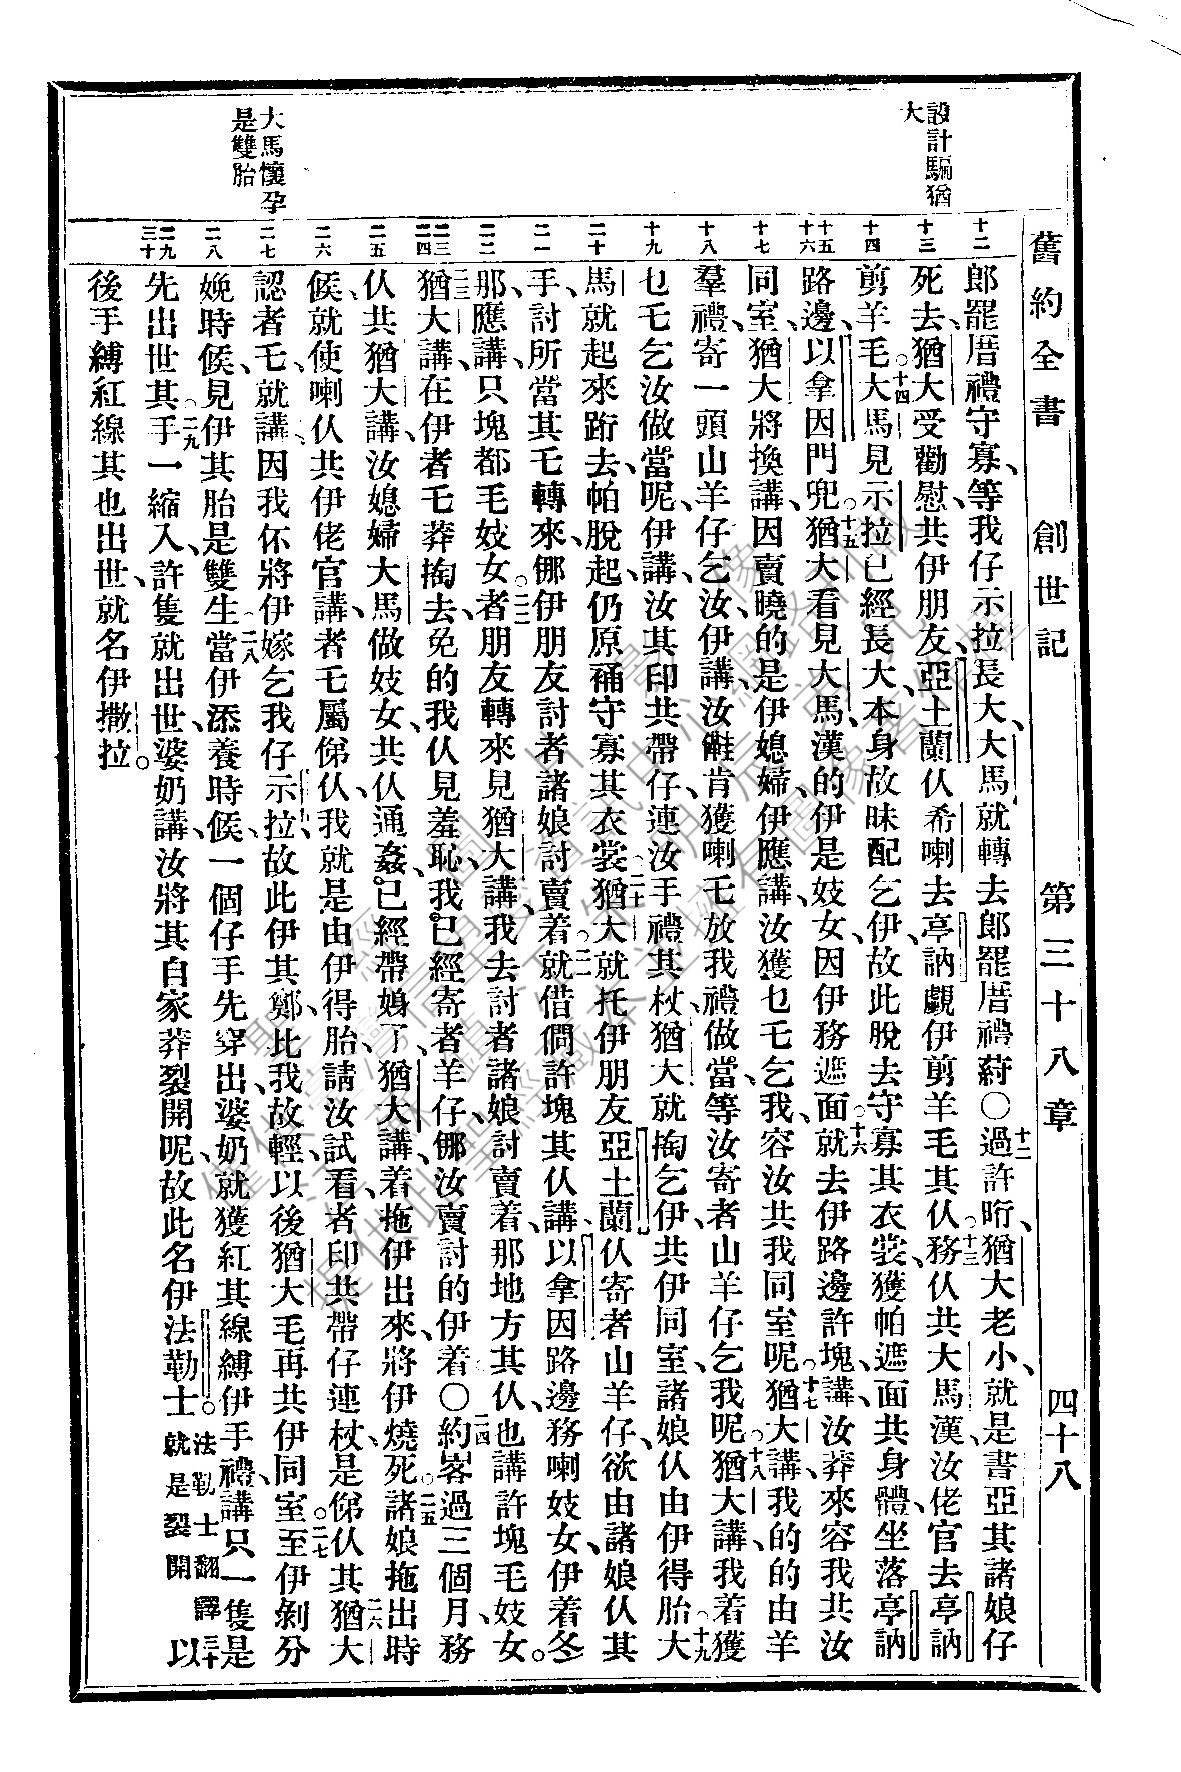 舊約全書　創世記　第三十八章　四十八
設計騙猶
大
大馬懷孕
是雙胎
十二
十三
十四
十五
十六
十七
十八
十九
二十
二一
二二
二三
二四
二五
二六
二七
二八
二九
三十
郎罷厝禮守寡、等我仔示拉長大、大馬就轉去郎罷厝禮蒔○十二過許昕、猶大老小、就是書亞其諸娘仔
死去、猶大受勸慰、共伊朋友、亞土蘭仈希喇去亭訥覷伊剪羊毛其仈。十三務仈共大馬漢、汝佬官去亭訥
剪羊毛。十四大馬見示拉已經長大、本身故昧配乞伊、故此脫去守寡其衣裳、獲帕遮面共身體、坐落亭訥
路邊、以拿因門兜。十五猶大看見大馬、漢的伊是妓女、因伊務遮面。十六就去伊路邊許塊、講、汝莽來容我共汝
同室、猶大將換講、因賣曉的是伊媳婦、伊應講、汝獲乜乇乞我、容汝共我同室呢。十七猶大講、我的的由羊
羣禮、寄一頭山羊仔乞汝、伊講、汝肯獲喇乇放我禮做當、等汝寄者山羊仔乞我呢。十八猶大講、我着獲
乜乇乞汝做當呢、伊講、汝其印共帶仔、連汝手禮其杖、猶大就掏乞伊、共伊同室、諸娘仈由伊得胎。十九大
馬就起來跡去、帕脫起、仍原補守寡其衣裳。二十猶大就托伊朋友亞土蘭仈寄者山羊仔、欲由諸娘仈其
手、討所當其乇轉來、㑚伊朋友討者諸娘討賣着。二一就借問許塊其仈講、以拿因路邊、務喇妓女、伊着冬
那、應講、只塊都毛妓女。二二者朋友轉來見猶大、講、我去討者諸娘、討賣着、那地方其仈、也講許塊毛妓女。
二三猶大講、在伊者乇莽掏去、免的我仈見羞恥、我已經寄者羊仔、㑚汝賣討的伊着○二四約畧過三個月、務
仈共猶大講、汝媳婦大馬做妓女、共仈通姦、已經帶娠了、猶大講、着拖伊出來、將伊燒死。二五諸娘拖出時
候、就使喇仈共伊佬官講、者乇屬俤仈、我就是由伊得胎、請汝試看、者印共帶仔連杖、是俤仈其。二六猶大
認者乇、就講、因我伓將伊嫁乞我仔示拉、故此伊其鄭比我故輕、以後猶大毛再共伊同室。二七至伊剝分
娩時候、見伊其胎是雙生、二八當伊添養時候、一個仔手先穿出、婆奶就獲紅其線縛伊手禮、講、只一隻是
先出世其。二九手一縮入、許隻就出世、婆奶講、汝將其自家莽裂開呢、故此名伊法勒士。法勒士翻譯就是裂開三十以
後手縛紅線其也出世、就名伊撒拉。